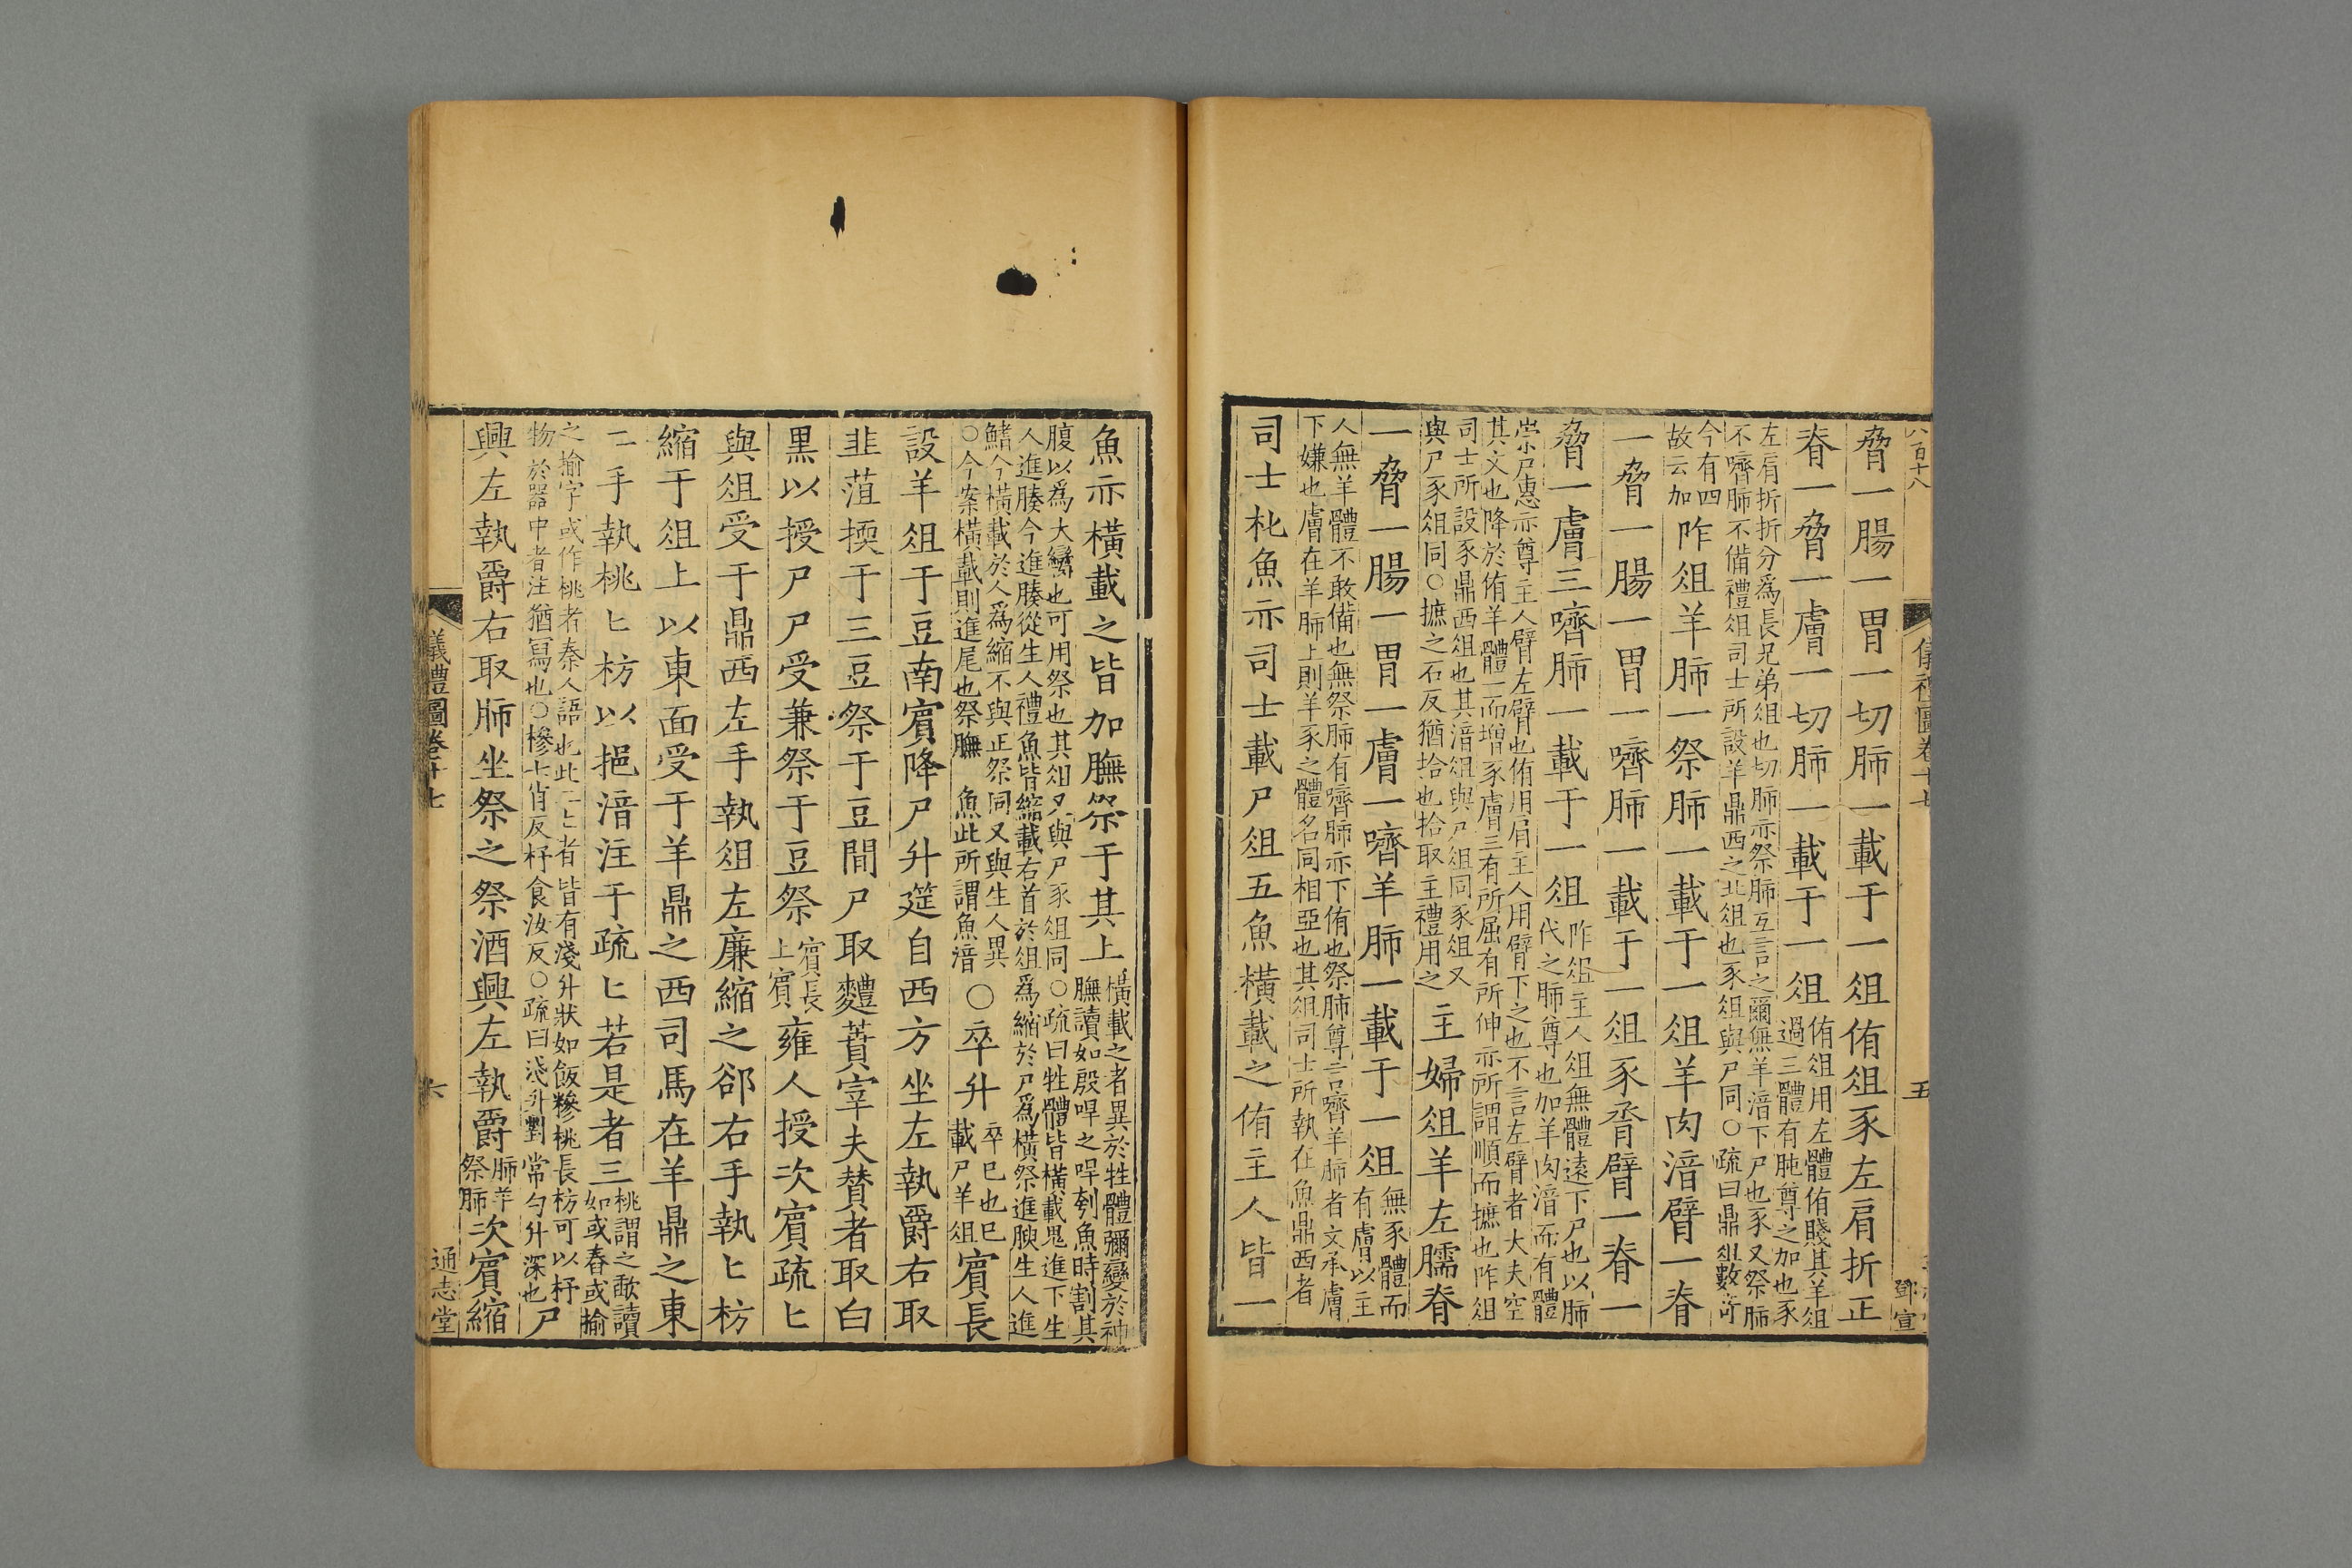 八百十八
儀禮圖卷十七
五
鄧宣
脅一腸一胃一切肺一載于一俎侑俎豕左肩折正
脊一脅一膚一切肺一載于一俎
侑俎用左體侑賤其羊俎
過三體有肫尊之加也豕
左肩折折分爲長兄弟俎也切肺亦祭肺互言之爾無羊湆下尸也豕又祭肺
不嚌肺不備禮俎司士所設羊鼎西之北俎也豕俎與尸同○疏曰鼎俎數奇
今有四
故云加
阼俎羊肺一祭肺一載于一俎羊肉湆臂一脊
一脅一腸一胃一嚌肺一載于一俎豕脀臂一脊一
脅一膚三嚌肺一載于一俎
阼俎主人俎無體遠下尸也以肺
代之肺尊也加羊肉湆而有體
崇尸惠亦尊主人臂左臂也侑用肩主人用臂下之也不言左臂者大夫空
其文也降於侑羊體一而增豕膚三有所屈有所伸亦所謂順而摭也阼俎
司士所設豕鼎西俎也其湆俎與尸俎同豕俎又
與尸豕俎同○摭之石反猶拾也拾取主禮用之
主婦俎羊左臑脊
一脅一腸一胃一膚一嚌羊肺一載于一俎
無豕體而
有膚以主
人無羊體不敢備也無祭肺有嚌肺亦下侑也祭肺尊言嚌羊肺者文承膚
下嫌也膚在羊肺上則羊豕之體名同相亞也其俎司士所執在魚鼎西者
司士朼魚亦司士載尸俎五魚橫載之侑主人皆一
魚亦橫載之皆加膴祭于其上
橫載之者異於牲體彌變於神
膴讀如殷哻之哻刳魚時割其
腹以爲大臠也可用祭也其俎又與尸豕俎同○疏曰牲體皆橫載鬼進下生
人進腠今進腠從生人禮魚皆縮載右首於俎爲縮於尸爲橫祭進腴生人進
鰭今橫載於人爲縮不與正祭同又與生人異
○今案橫載則進尾也祭膴　魚此所謂魚湆
○卒升
卒巳也巳
載尸羊俎
賓長
設羊俎于豆南賓降尸升筵自西方坐左執爵右取
韭菹擩于三豆祭于豆間尸取麷蕡宰夫贊者取白
黑以授尸尸受兼祭于豆祭
賓長
上賓
雍人授次賓疏匕
與俎受于鼎西左手執俎左廉縮之卻右手執匕枋
縮于俎上以東面受于羊鼎之西司馬在羊鼎之東
二手執桃匕枋以挹湆注于疏匕若是者三
桃謂之歃讀
如或舂或揄
之揄字或作桃者秦人語也此二匕者皆有淺升狀如飯糝桃長枋可以抒
物於器中者注猶寫也○㯓七肖反抒食汝反○疏曰淺升對常勺升深也
尸
興左執爵右取肺坐祭之祭酒興左執爵
肺羊
祭肺
次賓縮
儀禮圖卷十七
六
通志堂